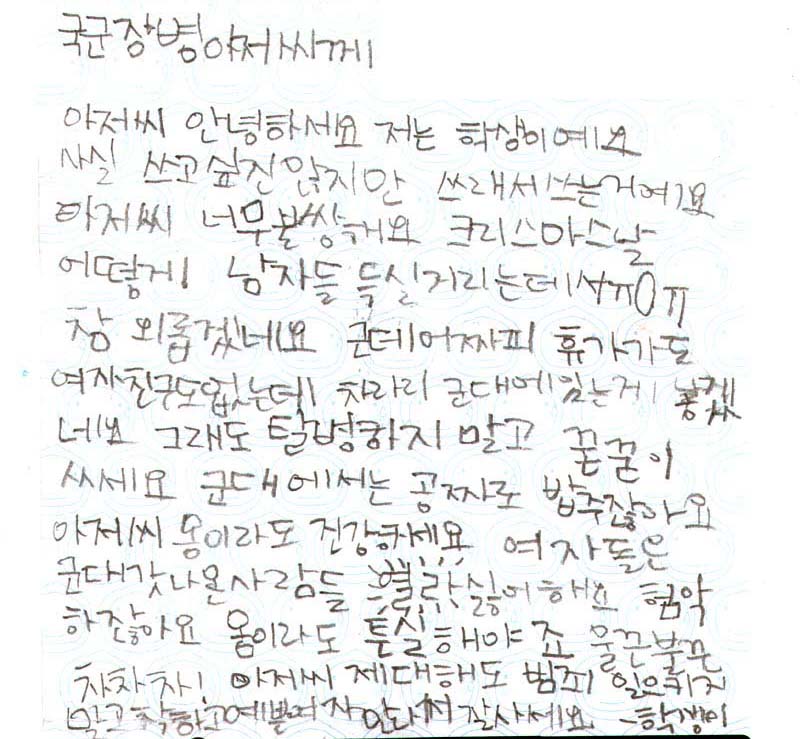 국군장병아저씨께
아저씨 안녕하세요 저는 학생이에요
사실 쓰고싶진않지만 쓰래서쓰는거에요
아저씨 너무불쌍해요 크리스마스날
어떻게 남자들 득실거리는데서ㅠ0ㅠ
참 외롭겠네요 근데어짜피 휴가가도
여자친구도없는데 차라리 군대에있는게 낳겠
네요 그래도 탈병하지 말고 꾿꾿이
싸세요 군대에서는 공짜로 밥주잖아요
아저씨 몸이라도 건강하세요 여자들은
군대갓나온사람들 별라 싫어해요 험악
하잖아요 몸이라도 튼실해야죠 울끈불끈
차차차! 아저씨 제대해도 범죄 일으키지
말고 착하고예쁜여자만나서 잘사세요 -학생이